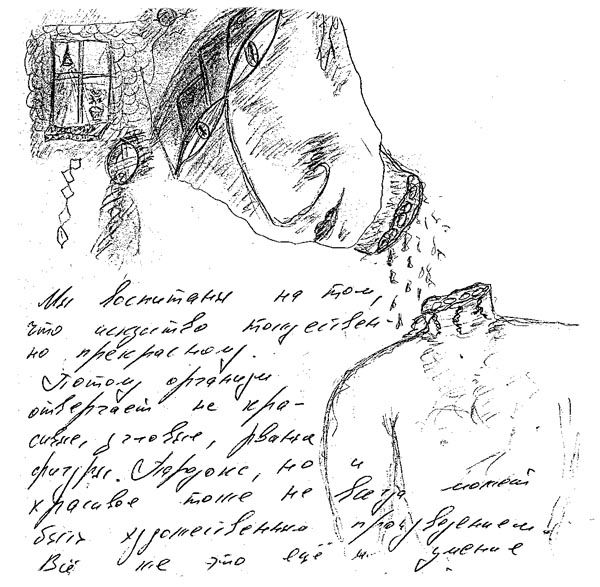 Мы воспитаны на том,
что искусство тождествен-
но прекрасному.
Потому организм
отвергает не кра-
сивые, угловые, рваные
фигуры. Парадокс, но и
красивое тоже не всегда может
быть художественным произведением.
Всё же это ещё и умение